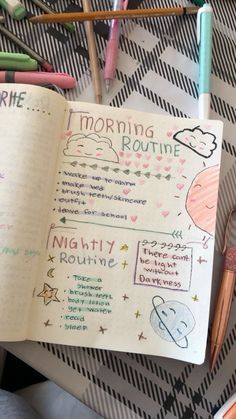 MORNING
ROUTINE
wake up to alarm
make bed
brush teeth/skincare
outfit
leave for school
NIGHTLY
Routine
Take a
shower
brush teeth
body lotion
get water
read
sleep
There cant
be light
without
Darkness